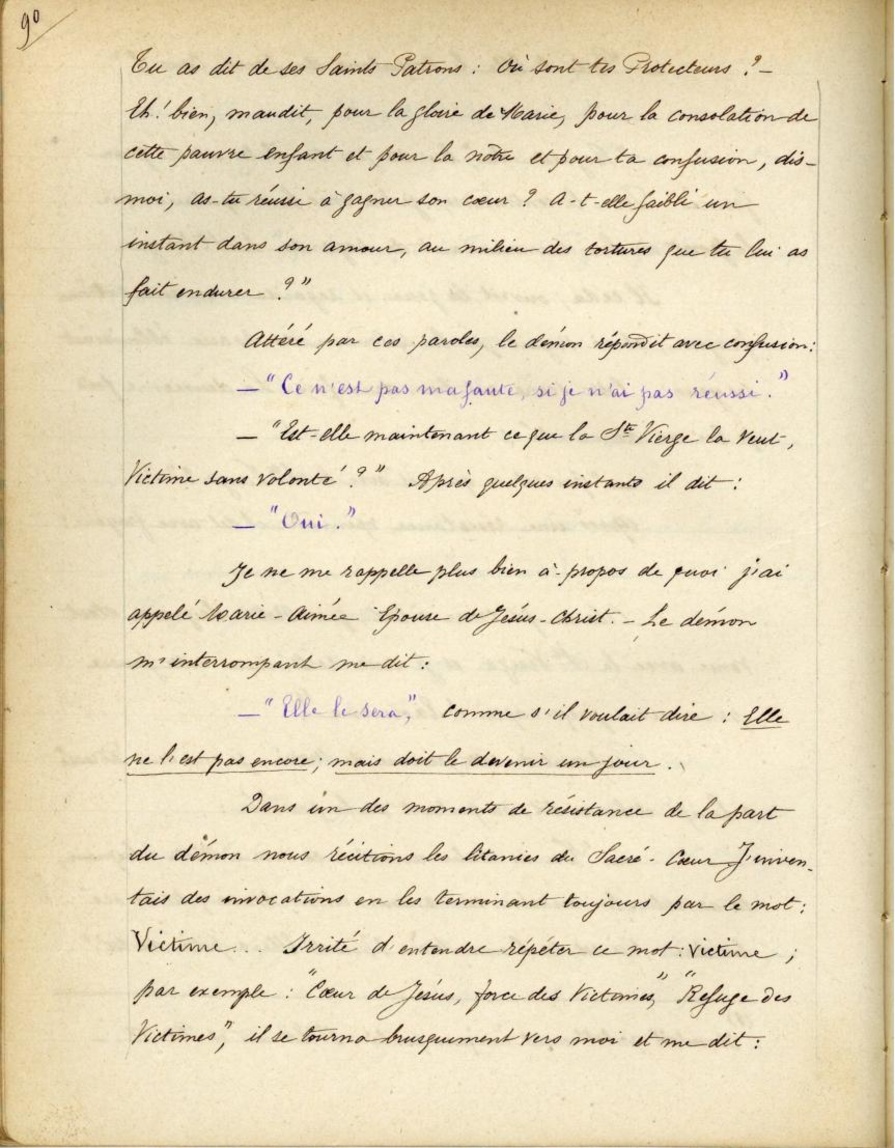 90
Tu as dit de ses Saints Patrons : Où sont tes Protecteurs ? –
Eh ! bien, maudit, pour la gloire de Marie, pour la consolation de
cette pauvre enfant et pour la nôtre et pour ta confusion, dis-
moi, as-tu réussi à gagner son cœur ? A-t-elle faibli un
instant dans son amour, au milieu des tortures que tu lui as
fait endurer ? "
Attéré par ces paroles, le démon répondit avec confusion :
– "Ce n'est pas ma faute, si je n'ai pas réussi."
– "Est-elle maintenant ce que la Ste Vierge la veut,
Victime sans volonté ? " Après quelques instants il dit :
– "Oui."
Je ne me rappelle plus bien à-propos de quoi j'ai
appelé Marie-Aimée Epouse de Jésus-Christ. – Le démon
m'interrompant me dit :
– "Elle le sera," comme s'il voulait dire : Elle
ne l'est pas encore ; mais doit le devenir un jour.
Dans un des moments de résistance de la part
du démon nous récitions les litanies du Sacré-Cœur J'inven-
tais des invocations en les terminant toujours par le mot :
Victime... Irrité d'entendre répéter ce mot : Victime ;
par exemple : "Cœur de Jésus, force des Victimes," "Refuge des
Victimes", il se tourna brusquement vers moi et me dit :